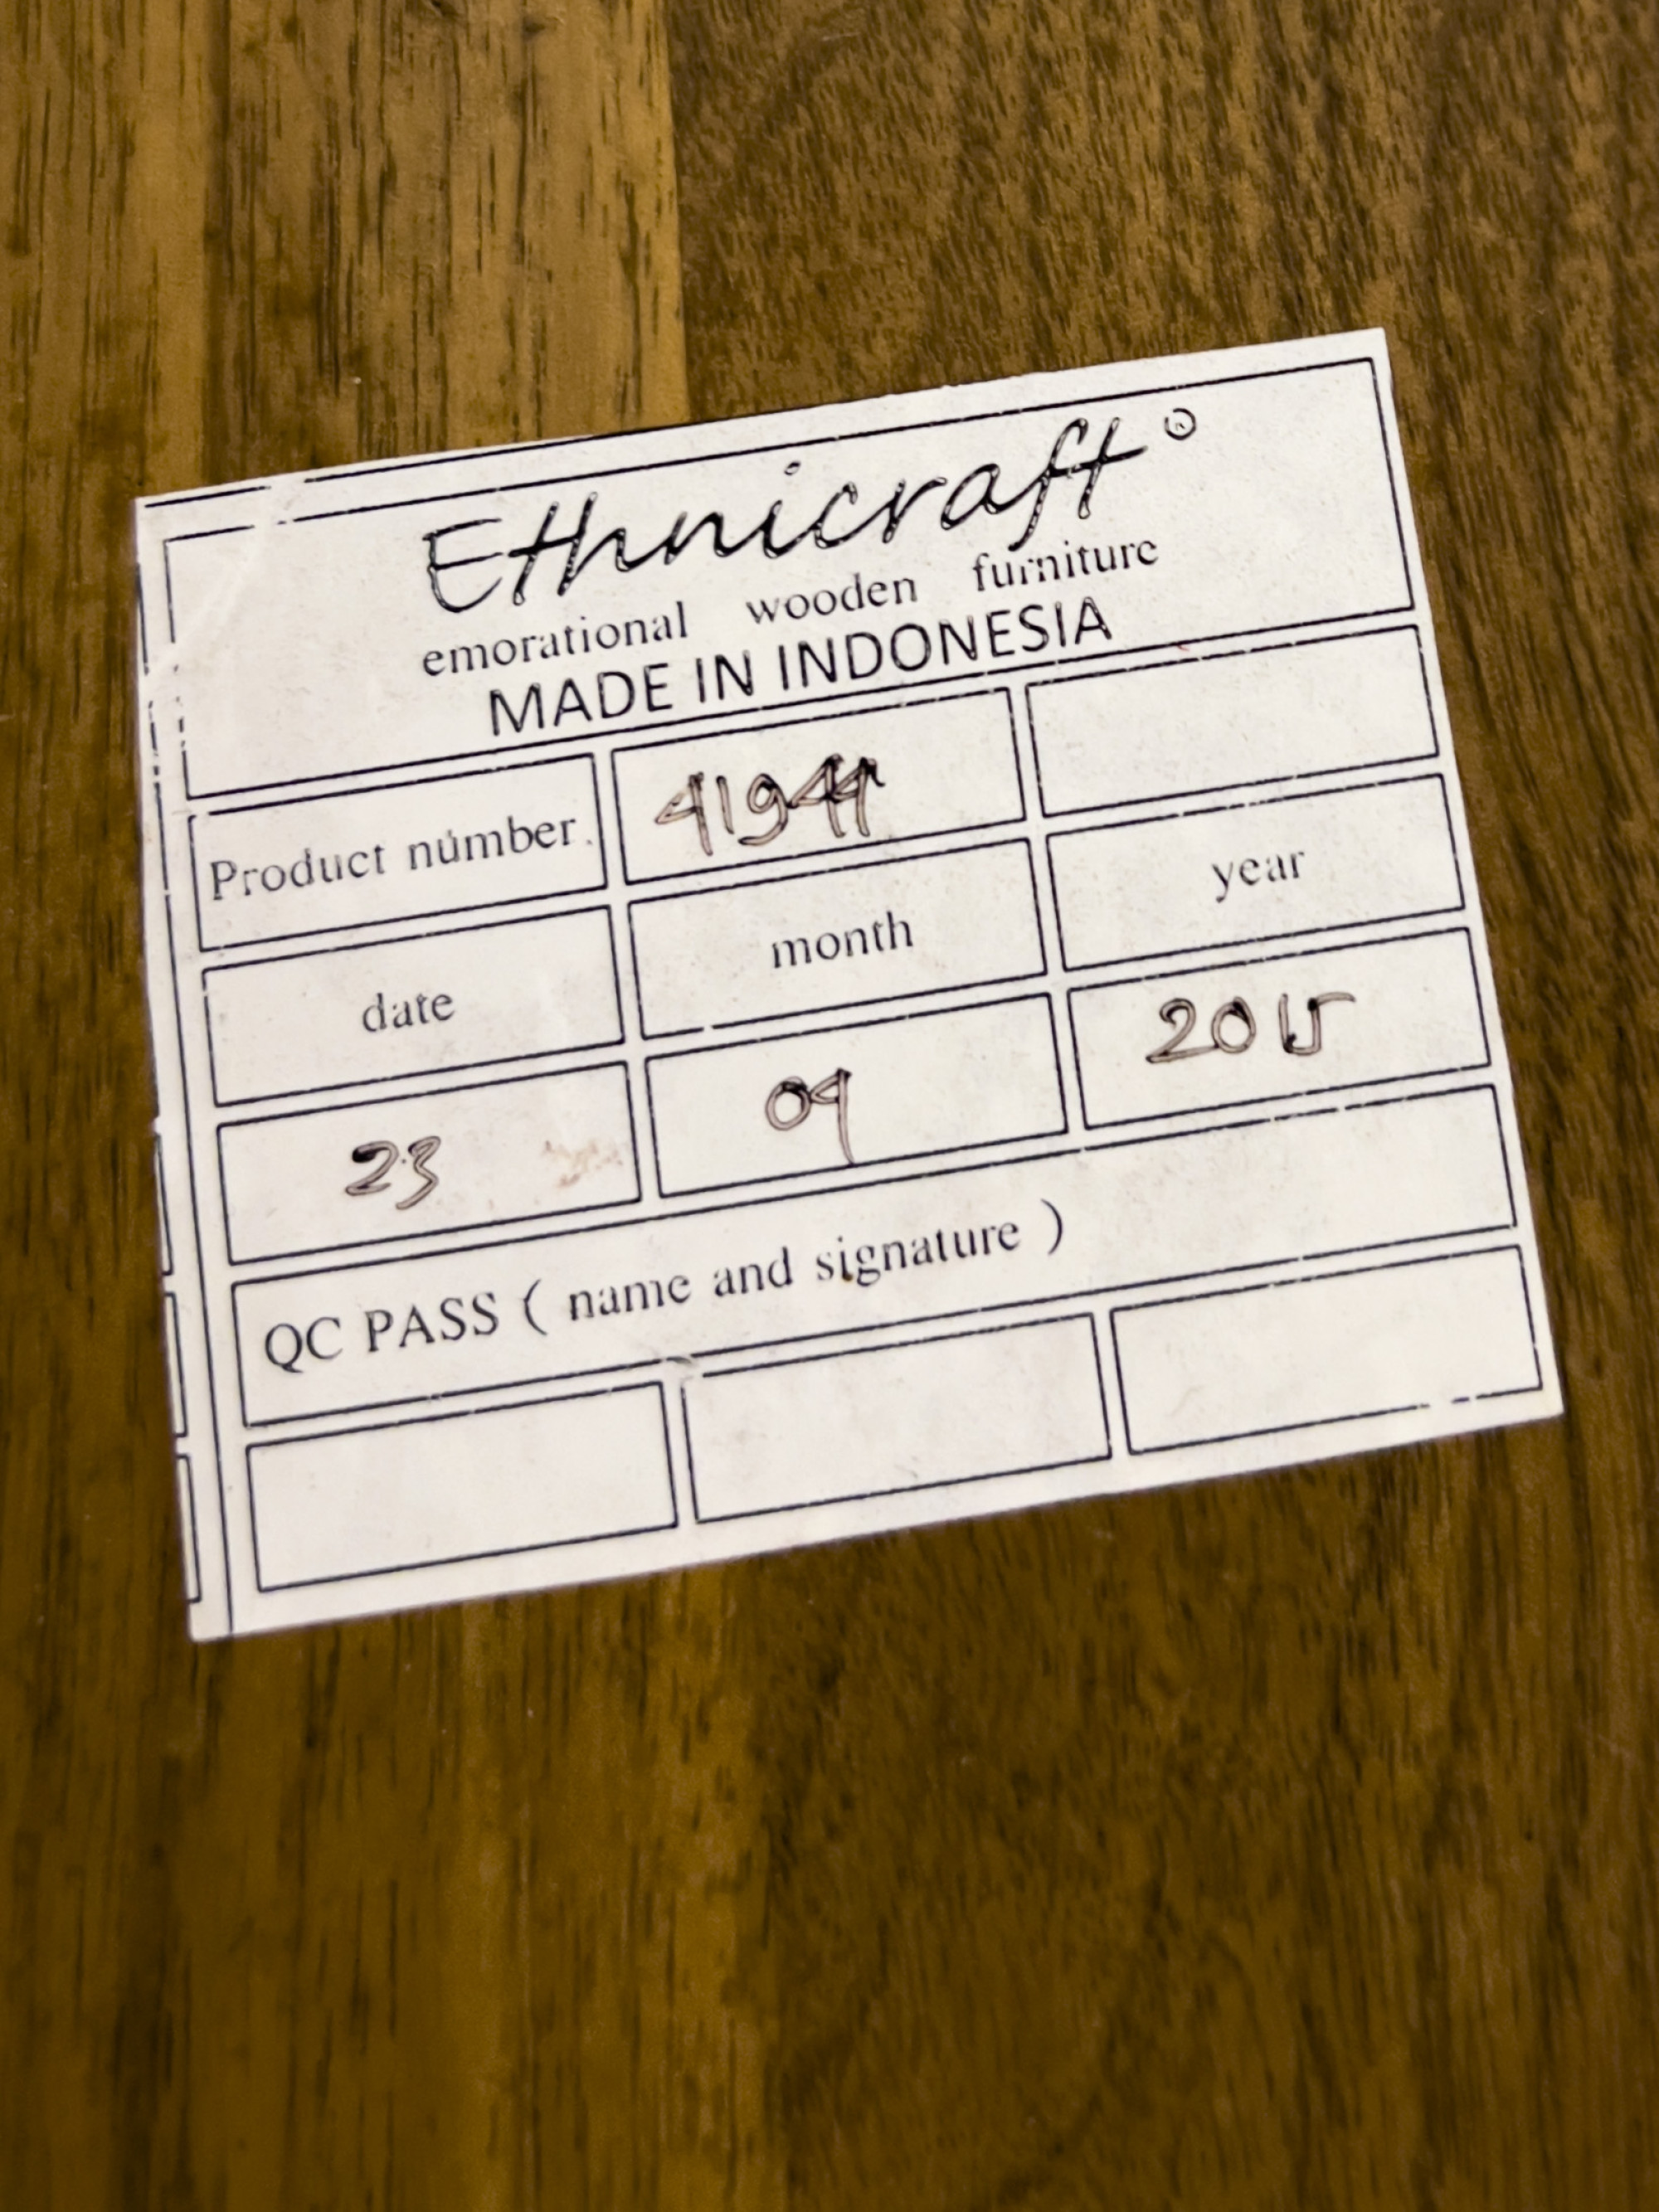 Ethnicraft ®
emorational wooden furniture
MADE IN INDONESIA
Product number
date month year
23 09 2015
QC PASS ( name and signature )